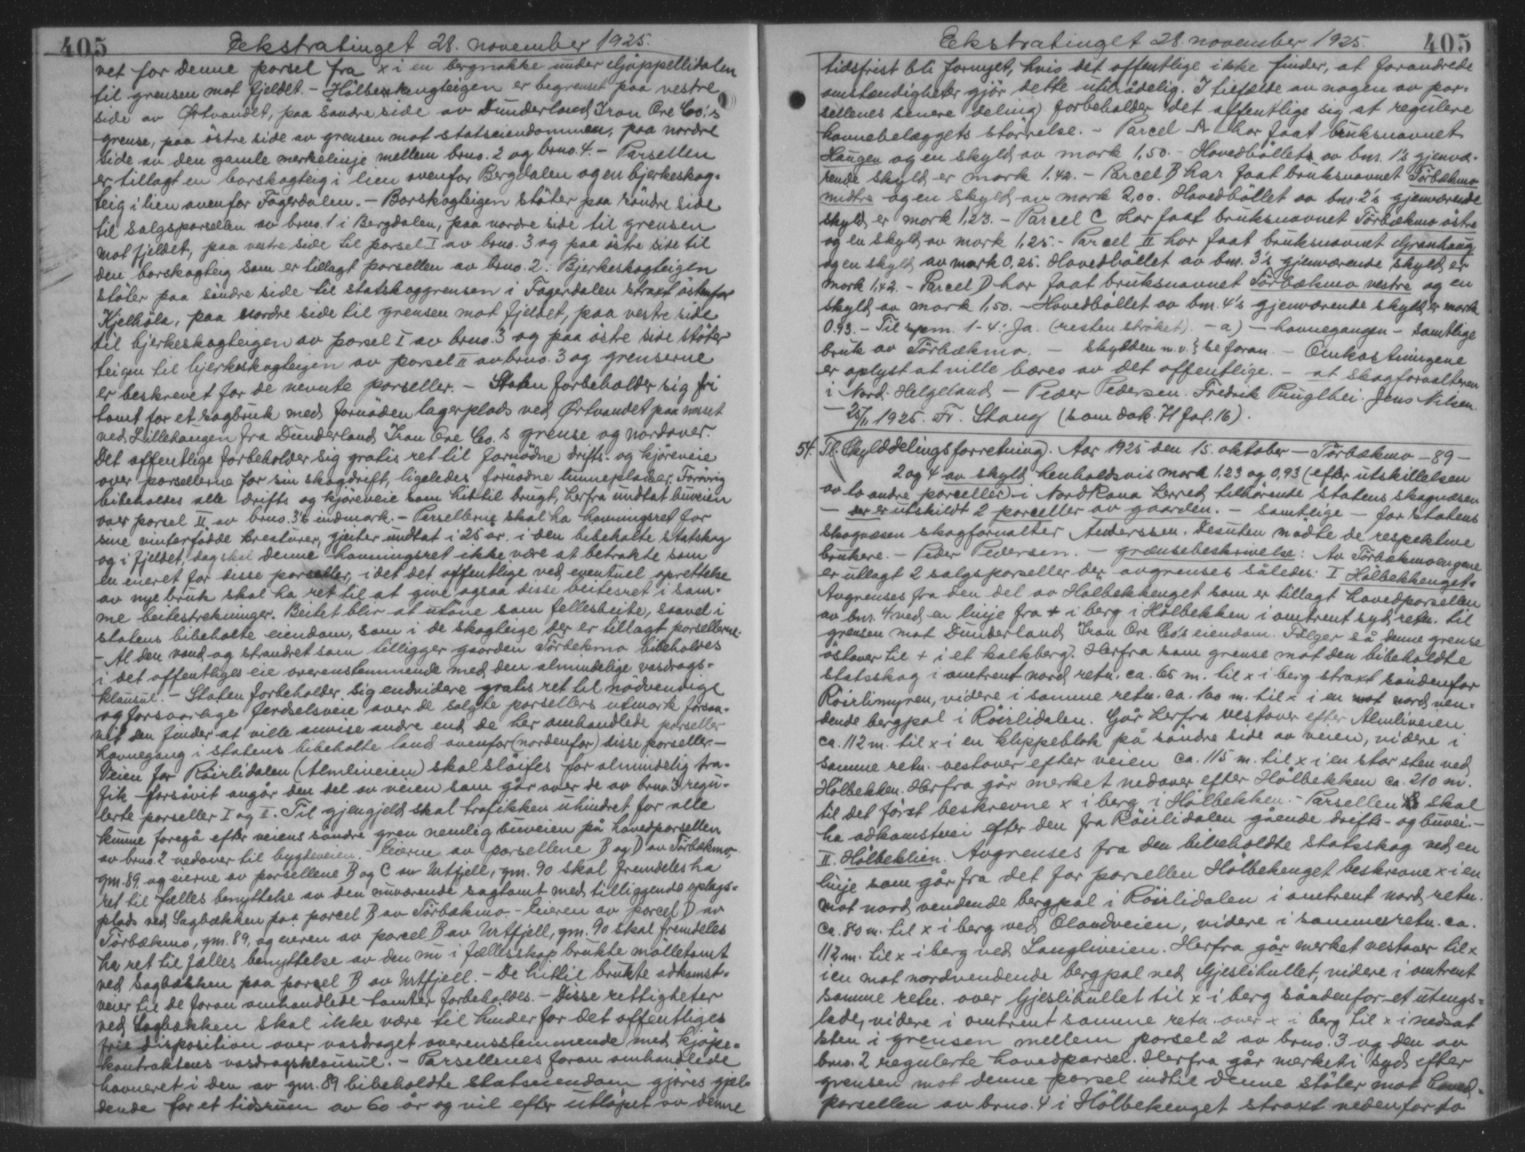 405
Ekstratinget 28. november 1925.
vet for denne parsel fra x i en bergnakke under
til grensen mot fjeldet. - er begrenset paa vestre
side av Ørtvandet, paa søndre side av Dunderland Iron Ore Co's
grense, paa östre side av grensen mot statseiendommen, paa nordre
side av den gamle merkelinje mellem brno. 2 og brno. 4. - Parsellen
er tillagt en barskogteig i lien ovenfor Bergdalen og en bjerkeskog-
teig i lien ovenfor Fagerdalen. - Barskogteigen stöter paa söndre side
til salgsparsellen av brno. 1 i Bergdalen, paa nordre side til grensen
mot fjeldet, paa vestre side til parsel I av brno. 3 og paa östre side til
den barskogteig som er tillagt parsellen av brno. 2. Bjerkeskogteigen
stöter paa söndre side til statskoggrensen i Fagerdalen straxt östenfor
Kjelhöla, paa nordre side til grensen mot fjeldet, paa vestre side
til bjerkeskogteigen av parsel I av brno. 3 og paa östre side stöter
teigen til bjerkeskogteigen av parsel II av brno. 3 og grenserne
er beskrevet for de nevnte parseller. - Staten forbeholder sig fri
tomt for et sagbruk med fornöden lagerplads ved Ørtvandet paa neset
ved Lilletangen fra Dunderland Iron Ore Co.s grense og nordover.
Det offentlige forbeholder sig gratis ret til fornödne drifts- og kjöreveie
over parsellerne for sin skogdrift, ligeledes fornödne tunnepladser. Forövrig
bibeholdes alle drifts og kjöreveie som hittil brugt, herfra undtat buveien
over parsel II av brno. 3's indmark. - Parsellerne skal ha havningsret for
sine vinterfödde kreaturer, gjeiter undtat i 25 aar, i den bibeholte statskog
og i fjeldet, dog skal denne havningsret ikke være at betrakte som
en eneret for disse parseller, idet det offentlige ved eventuel oprettelse
av nye bruk skal ha ret til at give ogsaa disse beitesret i sam-
me beitestrekninger. Beitet blir at utöve som fellesbeite, saavel i
statens bibeholte eiendom, som i de skogteige der er tillagt parsellerne.
- Al den vand- og strandret som tilligger gaarden Törbekmo bibeholdes
i det offentliges eie overensstemmende med den almindelige vasdrags-
klausul. - Staten forbeholder sig endvidere gratis ret til nödvendige
og forsvarlige ferdselsveie over de solgte parsellers utmark forsaa-
vit den finder at ville anvise andre end de her omhandlede parseller
havnegang i statens bibeholte land ovenfor (nordenfor) disse parseller. -
Veien for Röirlidalen (Almliveien) skal slöifes for almindelig tra-
fik forsåvit angår den del av veien som går over de av brno. 3 regu-
lerte parseller I og II. Til gjengjeld skal trafikken uhindret for alle
kunne foregå efter veiens söndre gren nemlig buveien på hovedparsellen
av brno. 2 nedover til bygdeveien. - Eierne av parsellene B og D av Törbekmo,
gnr. 89 og eierne av parsellene B og C av Urtfjell, gnr. 90 skal fremdeles ha
ret til fælles benyttelse av den nuværende sagtomt med tilliggende oplags-
plads ved Sagbækken paa parcel B av Törbækmo. - Eieren av parcel D av
Törbækmo, gnr. 89, og eieren av parcel B av Urtfjell, gnr. 90 skal fremdeles
ha ret til fælles benyttelse av den nu i fællesskap brukte mölletomt
ved Sagbækken paa parcel B av Urtfjell. - De hittil brukte adkomst-
veier til de foran omhandlede tomter forbeholdes. - Disse rettigheter
ved Sagbækken skal ikke være til hinder for det offentliges
frie disposition over vasdraget overensstemmende med kjöpe-
kontraktens vasdragsklausul. - Parsellenes foran omhandlede
havneret i den av gnr. 89 bibeholdte statseiendom gjöres gjel-
dende for et tidsrum av 60 år og vil efter utlöpet av denne
Ekstratinget 28. november 1925.
405
tidsfrist bli fornyet, hvis det offentlige ikke finder, at forandrede
omstændigheter gjör dette utilrådelig. I tilfælde av nogen av par-
sellenes senere deling forbeholder det offentlige sig at regulere
havnebelæggets störrelse. - Parcel A har faat bruksnavnet
Haugen og en skyld av mark 1,50. - Hovedböllets av bnr. 1's gjenvæ-
rende skyld er mark 1.40. - Parcel B har faat bruksnavnet Törbækmo
midtre og en skyld av mark 2,00. Hovedböllet av bnr. 2's gjenværende
skyld er mark 1.23. - Parcel C har faat bruksnavnet Törbækmo östre
og en skyld av mark 1,25. - Parcel II har faat bruksnavnet Granhaug
og en skyld av mark 0,25. Hovedböllet av bnr. 3's gjenværende skyld er
mark 1,42. - Parcel D har faat bruksnavnet Törbækmo vestre og en
skyld av mark 1,50. - Hovedböllet av bnr. 4's gjenværende skyld er mark
0.93. - Til spm. 1-4: Ja. (resten ströket). - a) - havnegangen - samtlige
bruk av Törbækmo. - se foran. - Omkostningene
er oplyst at ville bæres av det offentlige. - at skogforvalteren
i Nord-Helgeland - Peder Pedersen. Fredrik Jens Nilsen.
- 25/11 1925. Fr. Stang (som dok. 71 fol. 16).
54. Tl. Skylddelingsforretning. Aar 1925 den 15. oktober - Törbækmo - 89 -
2 og 4 av skyld henholdsvis mark 1.23 og 0,93 (efter utskillelsen
av to andre parceller) i Nord Rana herred, tilhörende statens skogvæsen
- der er utskildt 2 parceller av gaarden. - samtlige - for statens
skogvæsen skogforvalter Anderssen. Desuten mödte de respektive
brukere. - Peder Pedersen. - grænsebeskrivelse: Av Törbækmoengene
er utlagt 2 salgsparseller der avgrenses således: I Hölbekkenget.
Avgrenses fra den del av Hölbekkenget som er tillagt hovedparsellen
av bnr. 4 ved en linje fra + i berg i Hölbekken i omtrent syd retn. til
grensen mot Dunderland Iron Ore Co's eiendom. Fölger så denne grense
östover til + i et kalkberg. Herfra som grense mot den bibeholdte
statsskog i omtrent nord retn. ca. 65 m. til x i berg straxt söndenfor
Röirlimyren, videre i samme retn. ca. 100 m. til x i en mot nord ven-
dende bergpal i Röirlidalen. Går herfra vestover efter Almliveien
ca. 112 m. til x i en klippeblok på söndre side av veien, videre i
samme retn. vestover efter veien ca. 115 m. til x i en stor sten ved
Hölbekken. Herfra går merket nedover efter Hölbekken ca. 210 m.
til det först beskrevne x i berg i Hölbekken. - Parsellen skal
ha adkomstvei efter den fra Röirlidalen gående drifts- og buvei. -
II. Hölbeklien. Avgrenses fra den bibeholdte statsskog ved en
linje som går fra det for parsellen Hölbekenget beskrevne x i en
mot nord vendende bergpal i Röirlidalen i omtrent nord retn.
ca. 80 m. til x i berg ved Olandveien, videre i samme retn. ca.
112 m. til x i berg ved Langliveien. Herfra går merket vestover til x
i en mot nordvendende bergpal ved Gjeslihullet, videre i omtrent
samme retn. over Gjeslihullet til x i berg söndenfor et utengs-
lade, videre i omtrent samme retn. over x i berg til x i nedsat
sten i grensen mellem parsel 2 av brno. 3 og den av
brno. 2 regulerte hovedparsel. Herfra går merket i syd efter
grensen mot denne parsel indtil denne stöter mot hoved-
parsellen av brno. 4 i Hölbekenget straxt nedenfor to